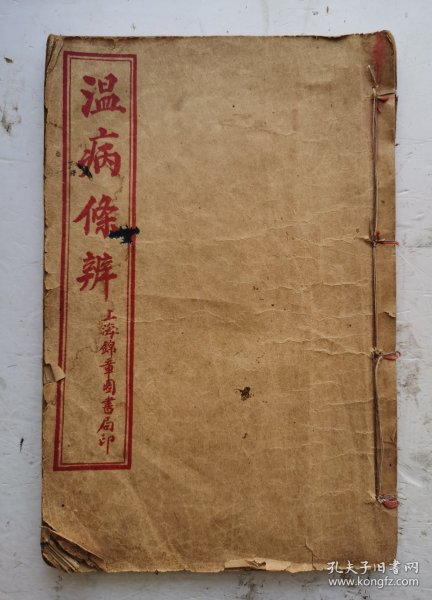 温病條辨
上海錦章圖書局印
孔夫子旧书网
www.kongfz.com